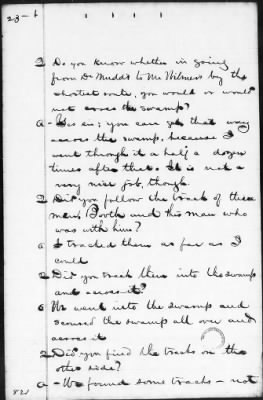 23-b
Q Do you know whether in going
from Dr Mudd's to Mr Wilmers by the
shortest route, you would or would
not cross the swamp?
a - Yes sir; you can get that way
across the swamp, because I
went through it a half a dozen
times after that. It is not a
very nice job, though.
Q Did you follow the track of these
men, Booth and this man who
was with him?
a I tracked them as far as I
could
Q Did you track them into the swamp
and across it?
a We went into the swamp and
scoured the swamp all over and
across it
Q Did you find the tracks on the
other side?
a - We found some tracks - not